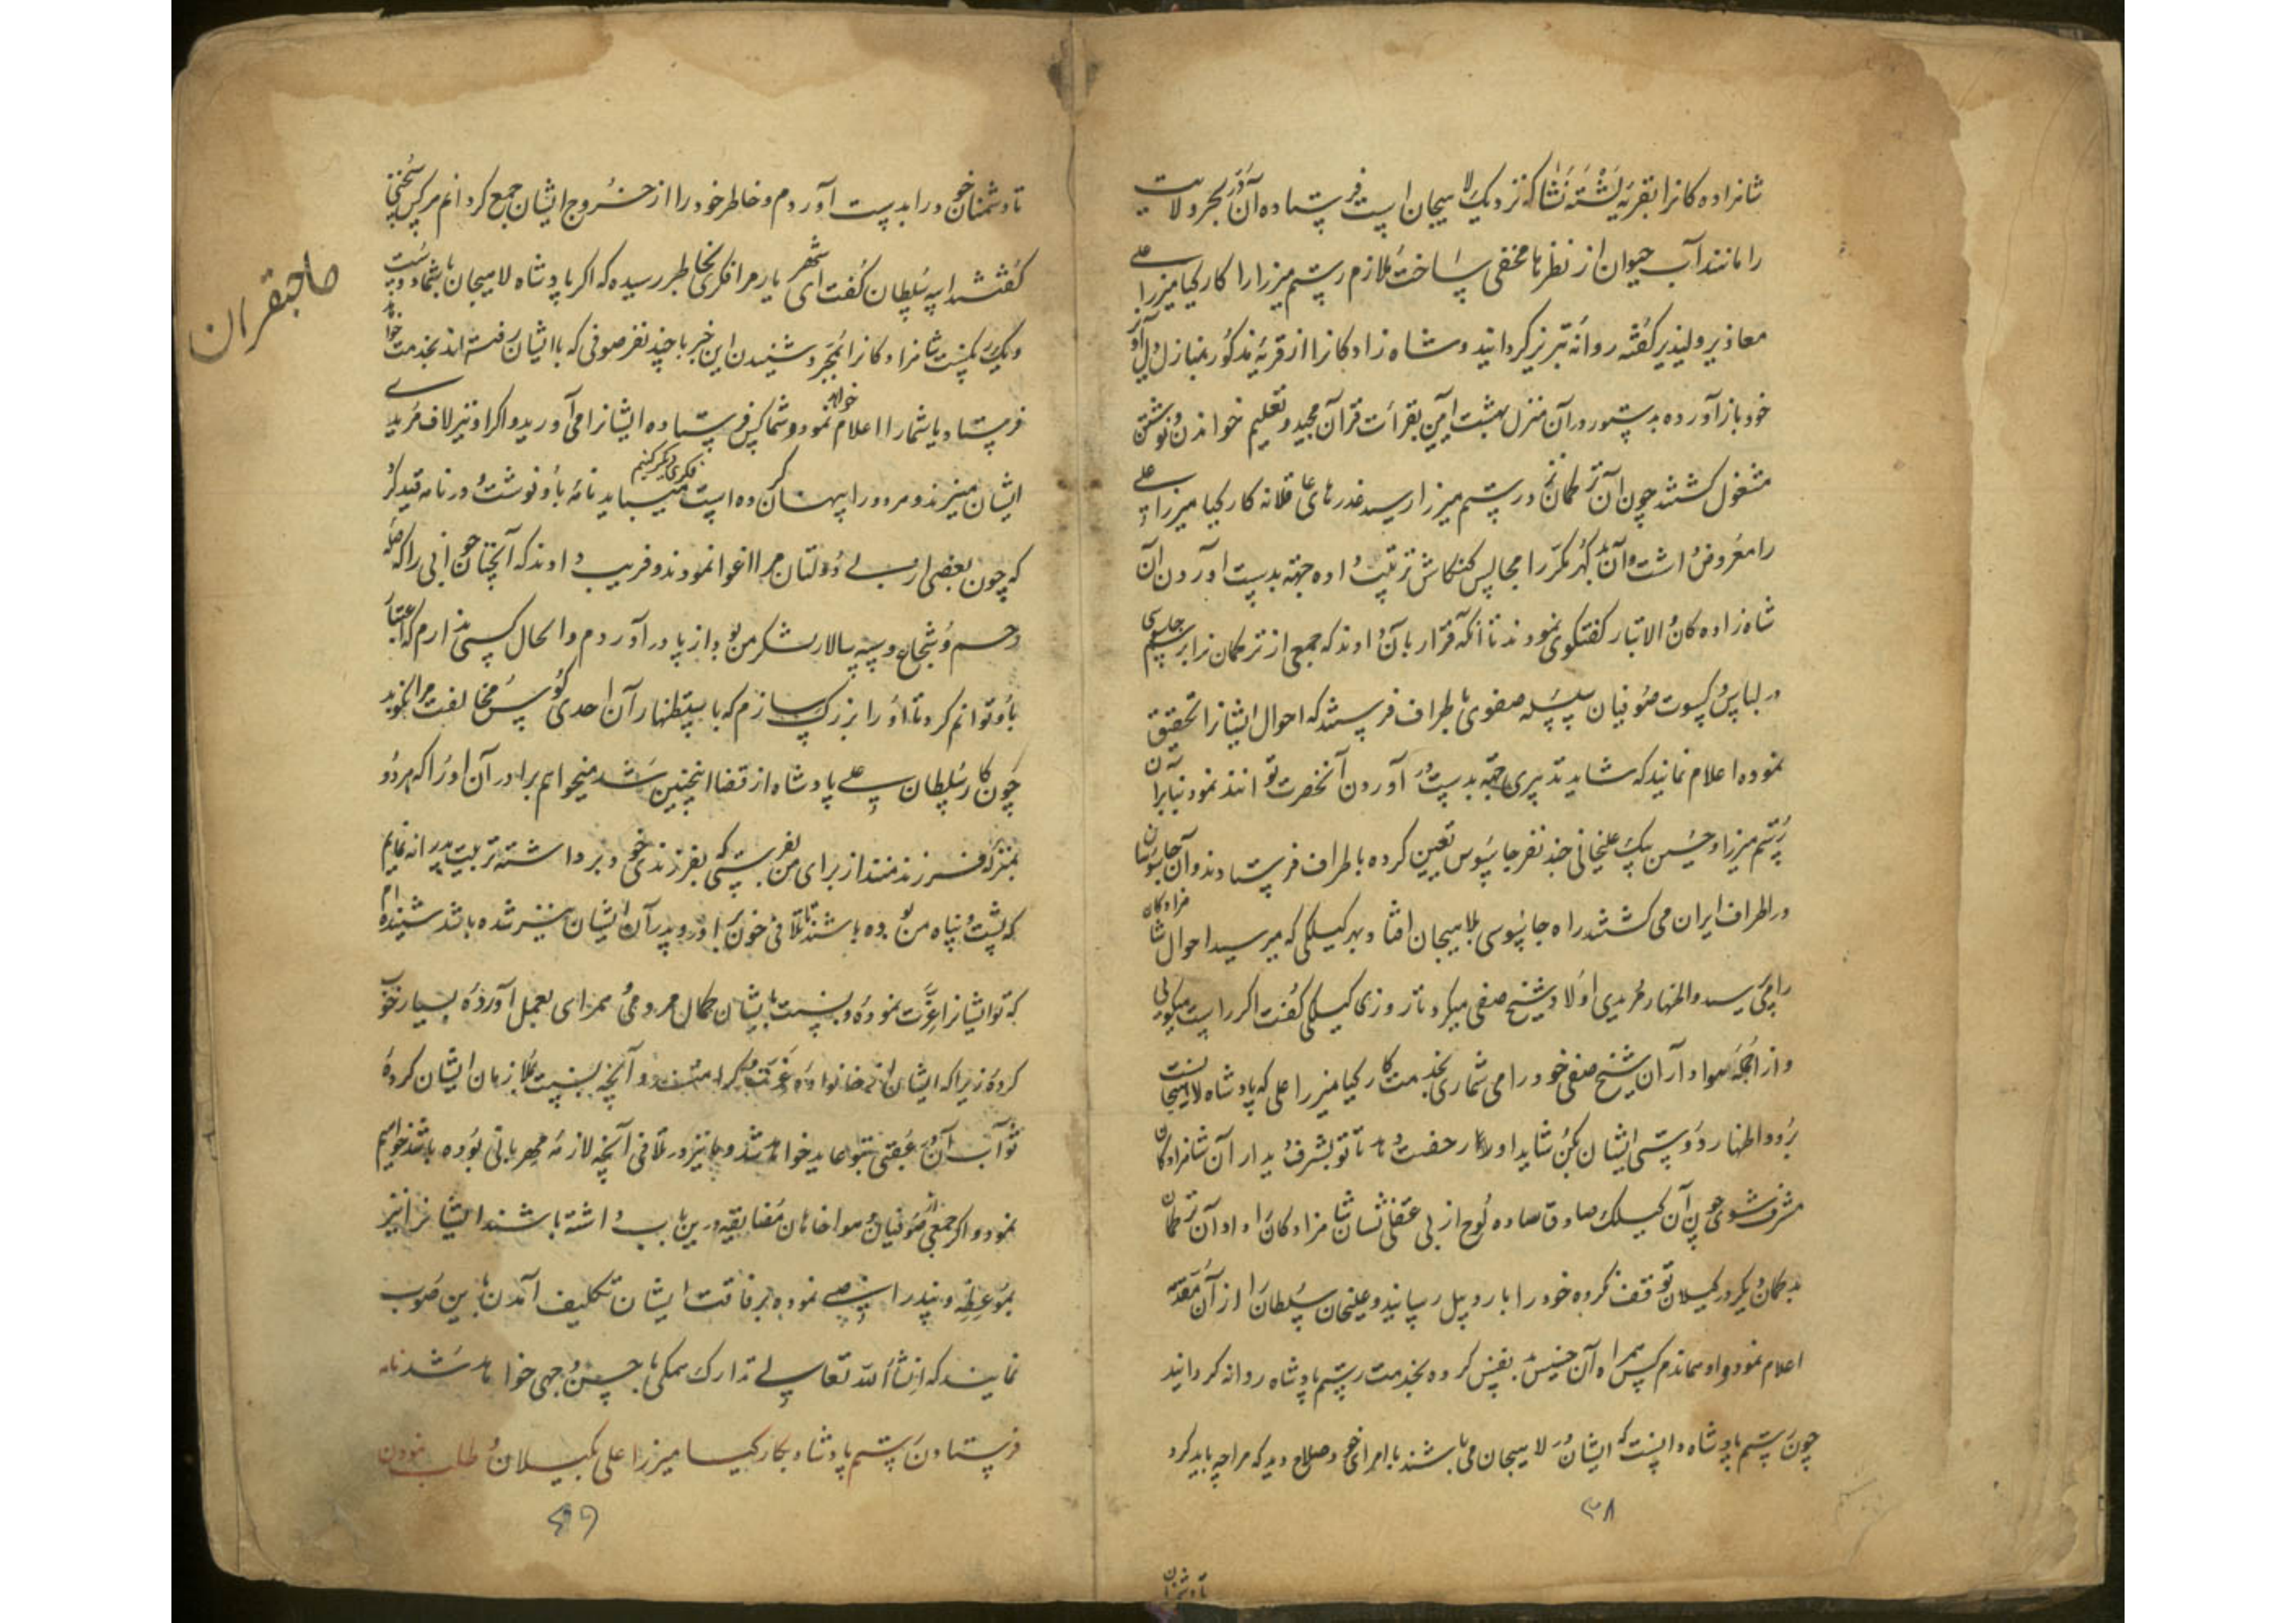 شاهزاده کانرا بقریه لشته نشاکه نزدیک لاهیجان است فرستاده آن در بحر ولایت
را مانند آب حیوان از نظرها مخفی ساخت ملازم رستم میرزا را کارکیا میرزا علی
معاذیر دلپذیر گفته روانه تبریز گردانید و شاه زادکانرا از قریه مذکور بمنازل دل آویز
خود باز آورده بدستور در آن منزل بهشت آیین بقرات قرآن مجید و تعلیم خواندن و نوشتن
مشغول گشتند چون آن ترکمانان نزد رستم میرزا رسید عذرهای عاقلانه کارکیا میرزا علی
را معروض داشت و آن مکرر مجالس کنکاش ترتیب داده جهة بدست آوردن آن
شاه زاده کان والاتبار گفتگوی نمودند تا آنکه قرار بآن دادند که جمعی از ترکمانانرا برسم جاسوسی
در لباس و کسوت صوفیان سلسله صفوی باطراف فرستند که احوال ایشانرا تحقیق
نموده اعلام نمایند که شاید تدبیری جهة بدست آوردن آنحضرت توانند نمود بنابرآن
رستم میرزا و حسین بیک علیخانی چند نفر جاسوس تعیین کرده باطراف فرستادند و آن جاسوسان
در اطراف ایران می گشتند راه جاسوسی بلاهیجان افتاد و بهر گیلکی که میرسید احوال شاهزادکان
را می پرسید و اظهار مریدی اولاد شیخ صفی میکرد تا روزی گیلکی گفت اگر راست میگویی
و از جمله هوادارن شیخ صفی خود را می شماری بخدمت کارکیا میرزا علی که پادشاه لاهیجانست
برو و اظهار دوستی ایشان بکن شاید او را رخصت دهد تا تو بشرف دیدار آن شاهزادکان
مشرف شوی چون آن گیلک صادق ساده لوح از بی عقلی نشان شاهزادکانرا داد آن ترکمان
بدگمان دیگر در گیلان توقف نکرده خود را باردبیل رسانید و علیخان سلطانرا از آن مقدمه
اعلام نمود و او هماندم کس همراه آن خسیس بدنفس کرده بخدمت رستم پادشاه روانه گردانید
چون رستم پادشاه دانست که ایشان در لاهیجان می باشند با امرای خود صلاح دید که مرا چه باید کرد
۳۸
تا دشمنان
تا دشمنان خود را بدست آوردم و خاطر خود را از خروج ایشان جمع گردانم هر کس سخنی
گفتند ایبه سلطان گفت ای شهریار مرا فکری بخاطر رسیده که اگر پادشاه لاهیجان با شما دوست
و یکرنگست شاهزادکانرا بمجرد شنیدن این خبر با چند نفر صوفی که با ایشان رفته اند بخدمت خواهد
فرستاد یا شما را اعلام خواهد نمود و شما کس فرستاده ایشانرا می آورید و اگر او نیز لاف مریدی
ایشان میزند و مردود را پنهان کرده است فکری دیگر کنیم میباید نامه باو نوشت و در نامه قید کرد
که چون بعضی از بی دولتان مرا اغوا نمودند و فریب دادند که آنچنان جوانی را که صله
رحم و شجاع و سپه سالار لشکر من بود از پا در آوردم و الحال کسی ندارم که اعتبار
باو توانم کرد تا او را بزرگ سازم که باستظهار آن احدی کوس مخالفت مرا نکوبد
چون کار سلطان علی پادشاه از قضا اینچنین شد میخواهم برادر آن او را که هر دو
بمنزله فرزندمند از برای من بفرستی که بفرزندی خود برداشته تربیت پدرانه نمایم
که پشت و پناه من بوده باشند تا تلافی خون برادر و پدر آن ایشان نیز شده باشد شنیده ام
که تو ایشانرا عزت نموده و بنسبت بایشان کمال مروت و مردمی بعمل آورده بسیار خوب
کرده زیرا که ایشان از خانواده عزت و کرامتند و آنچه بنسبت ملازمان ایشان کرده
ثواب آن در عقبی بتو عاید خواهد شد و ما نیز در تلافی آنچه لازمه مهربانی بوده باشد خواهیم
نمود و اگر جمعی از صوفیان و هواخاهان مضایقه درین باب داشته باشند ایشانرا نیز
بموعظه و پند راضی نموده برفاقت ایشان تکلیف آمدن باین صوب
نمایند که انشاء الله تعالی تدارک همگی باحسن وجهی خواهد شد نامه
فرستادن رستم پادشاه بکارکیا میرزا علی بگیلان و طلب نمودن
صاحبقران
۳۹